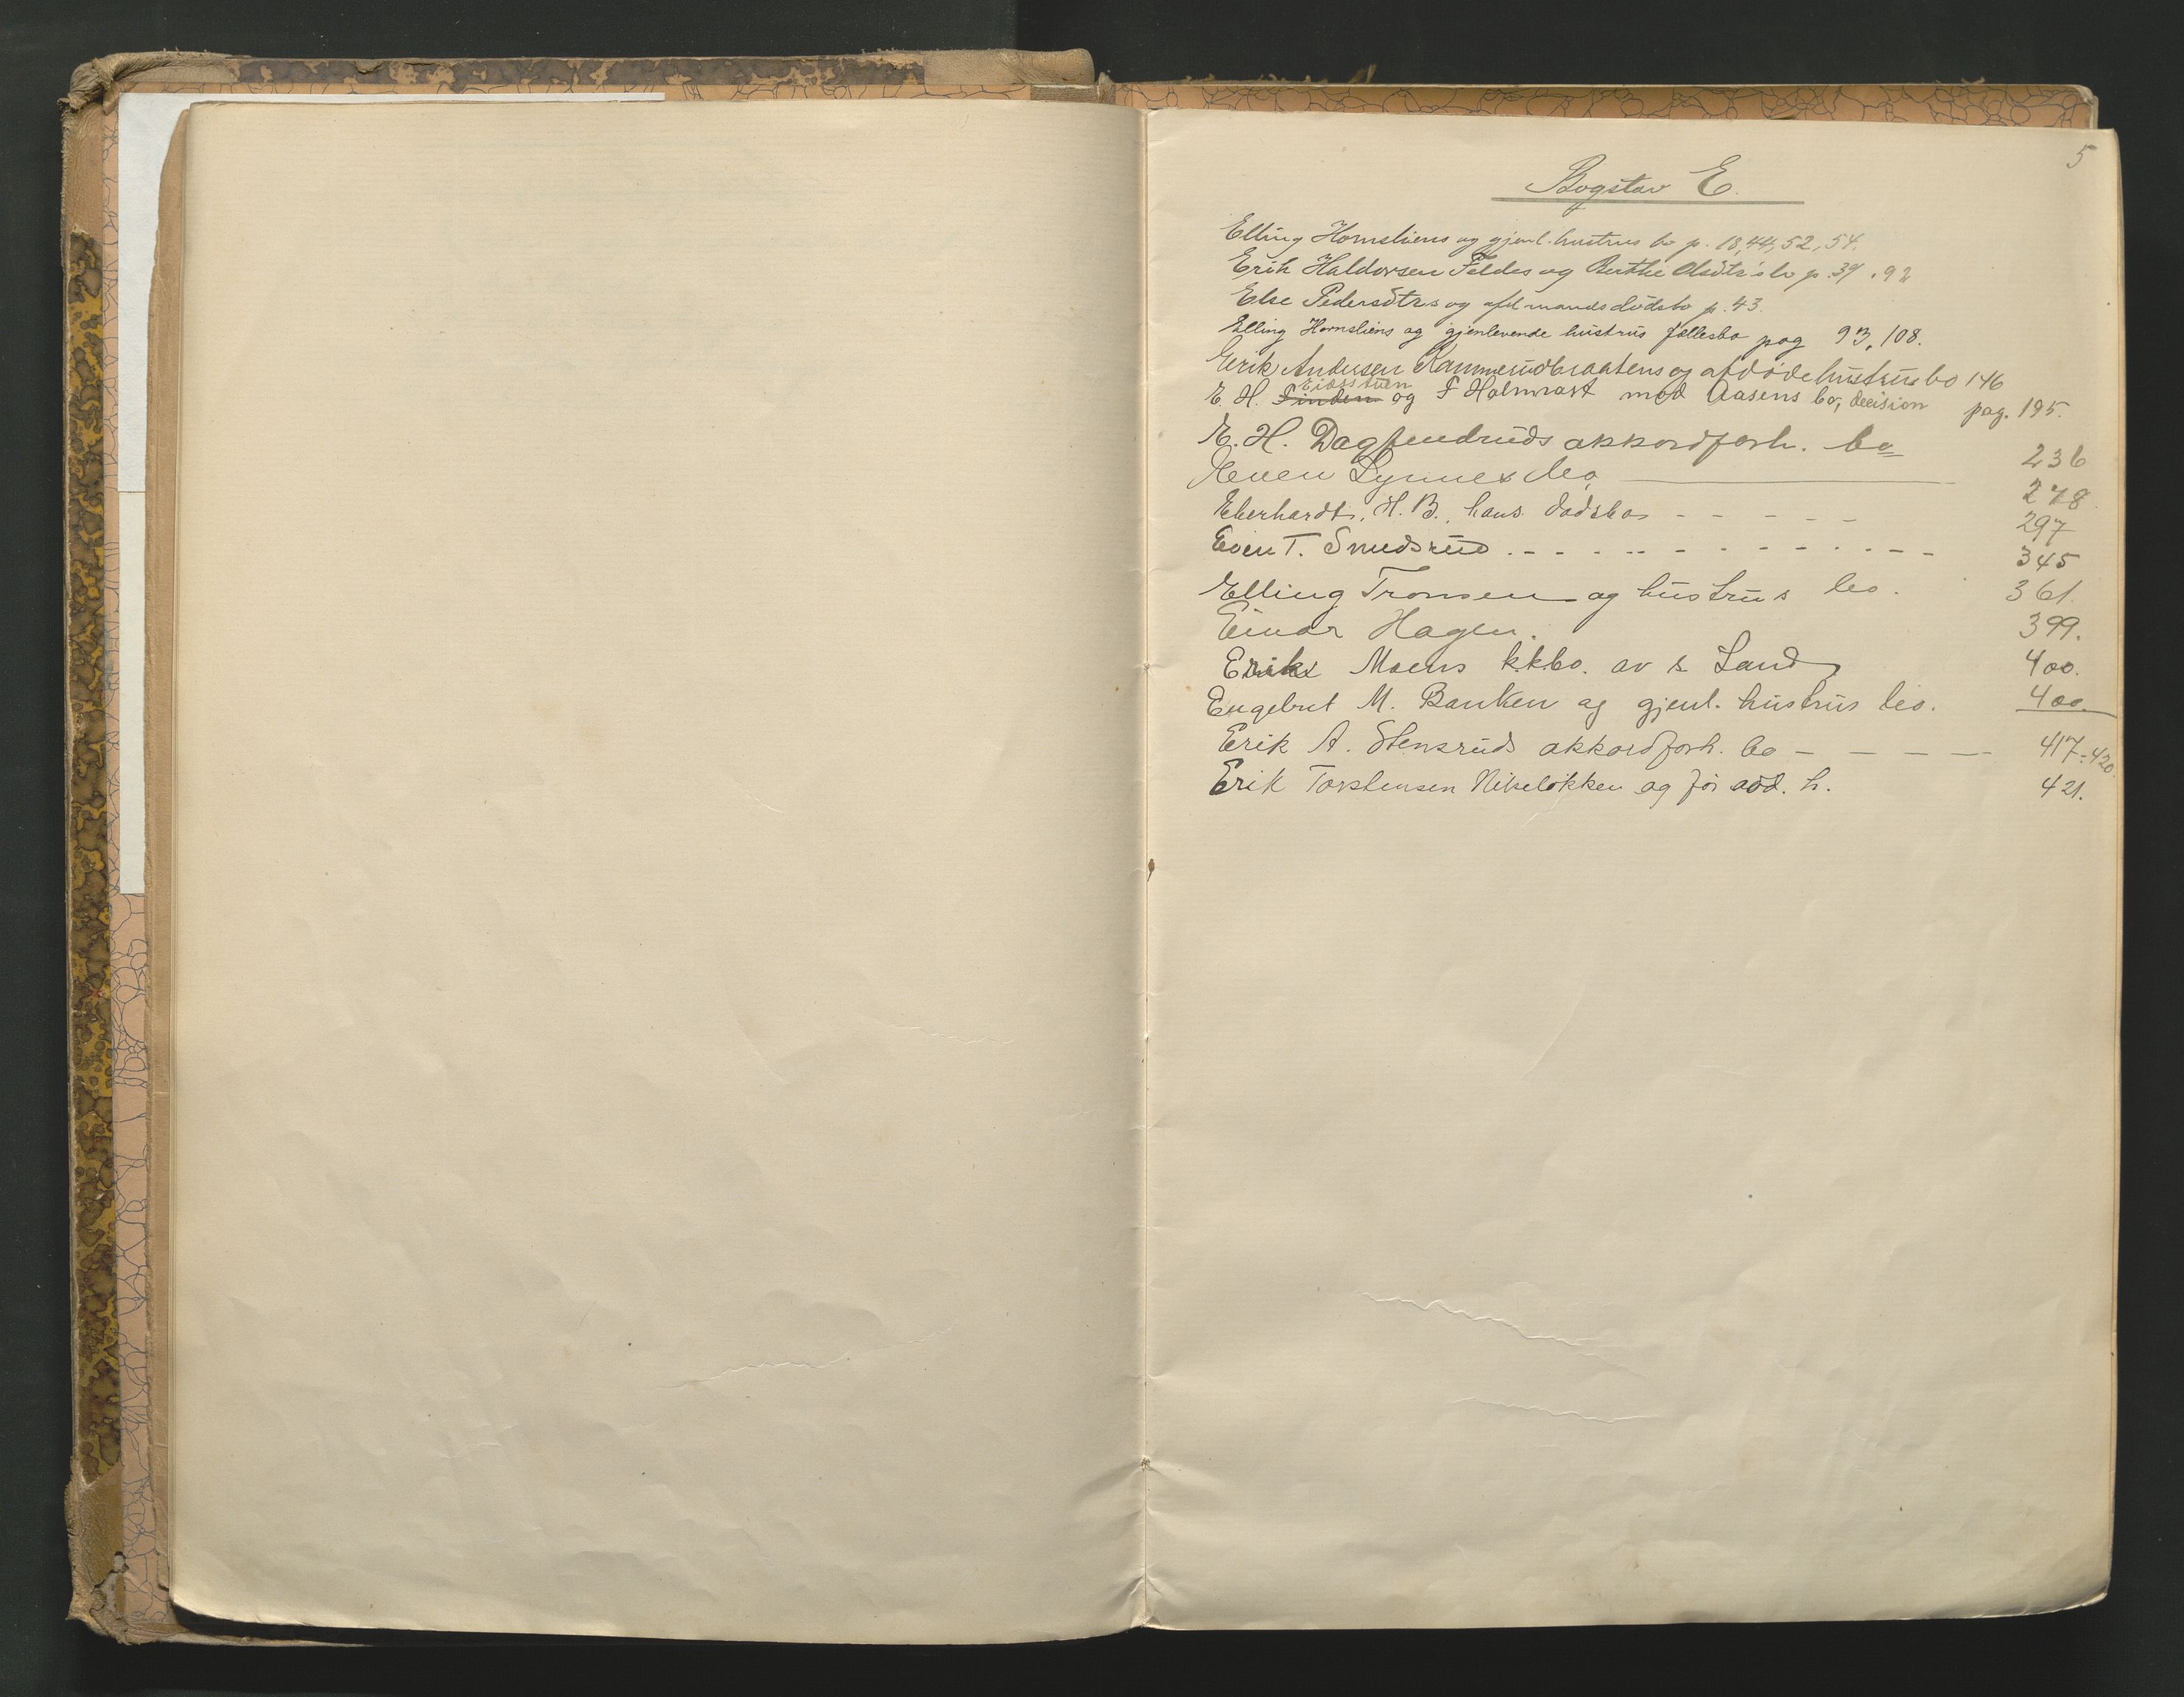 5
Bogstav E.
Elling Hornsliens og gjenl. hustrus bo p. 18, 44, 52, 54.
Erik Haldorsen Feldes og Berthe Olsdtr's bo p. 39, 92
Else Pedersdtrs og afd mands dödsbo p. 43.
Elling Hornsliens og gjenlevende hustrus fællesbo pag 93, 108.
Erik Andersen Rammerudbraatens og afdøde hustrus bo 146
Eidsstuen
E. H. Linden og F Halmrast mod Aasens bo, decision pag. 195.
E. H. Dagfendruds akkordforh. bo 236
Even Lynnes bo 278.
Eberhardt, H. B., hans dödsbo - - - - - 297
Even T. Smedsrud . - - - - - - - - - - - 345
Elling Tronsen og hustrus bo. 361.
Einar Hagen. 399.
Eriks Moens kkbo. av s. Land 400.
Engebret M. Banken og gjenl. hustrus bo. 400.
Erik A. Stensruds akkordforh. bo - - - - - 417-420.
Erik Torstensen Nikeløkken og før avd. h. 421.